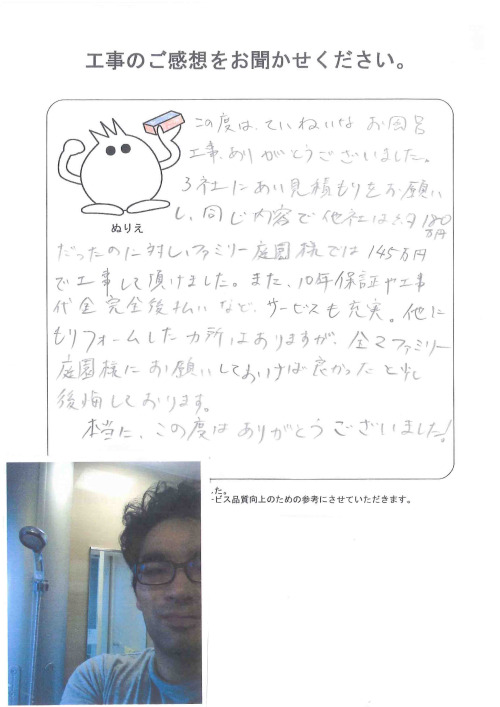 工事のご感想をお聞かせください。
この度は、ていねいなお風呂
工事、ありがとうございました。
3社にあい見積もりをお願い
し、同じ内容で他社は約180万円
ぬりえ
だったのに対し、ファミリー庭園様では145万円
で工事して頂けました。また、10年保証や工事
代金完全後払いなど、サービスも充実。他に
もリフォームしたカ所はありますが、全てファミリー
庭園様にお願いしておけば良かったと少し
後悔しております。
本当に、この度はありがとうございました!
た。
ービス品質向上のための参考にさせていただきます。